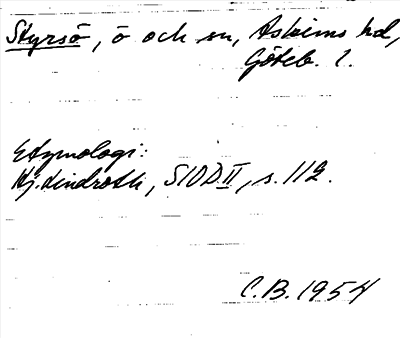 Styrsö, ö och sn, Askims hd,
Göteb. l.
Etymologi:
Hj. Lindroth, SIOD II, s. 112.
C.B. 1954